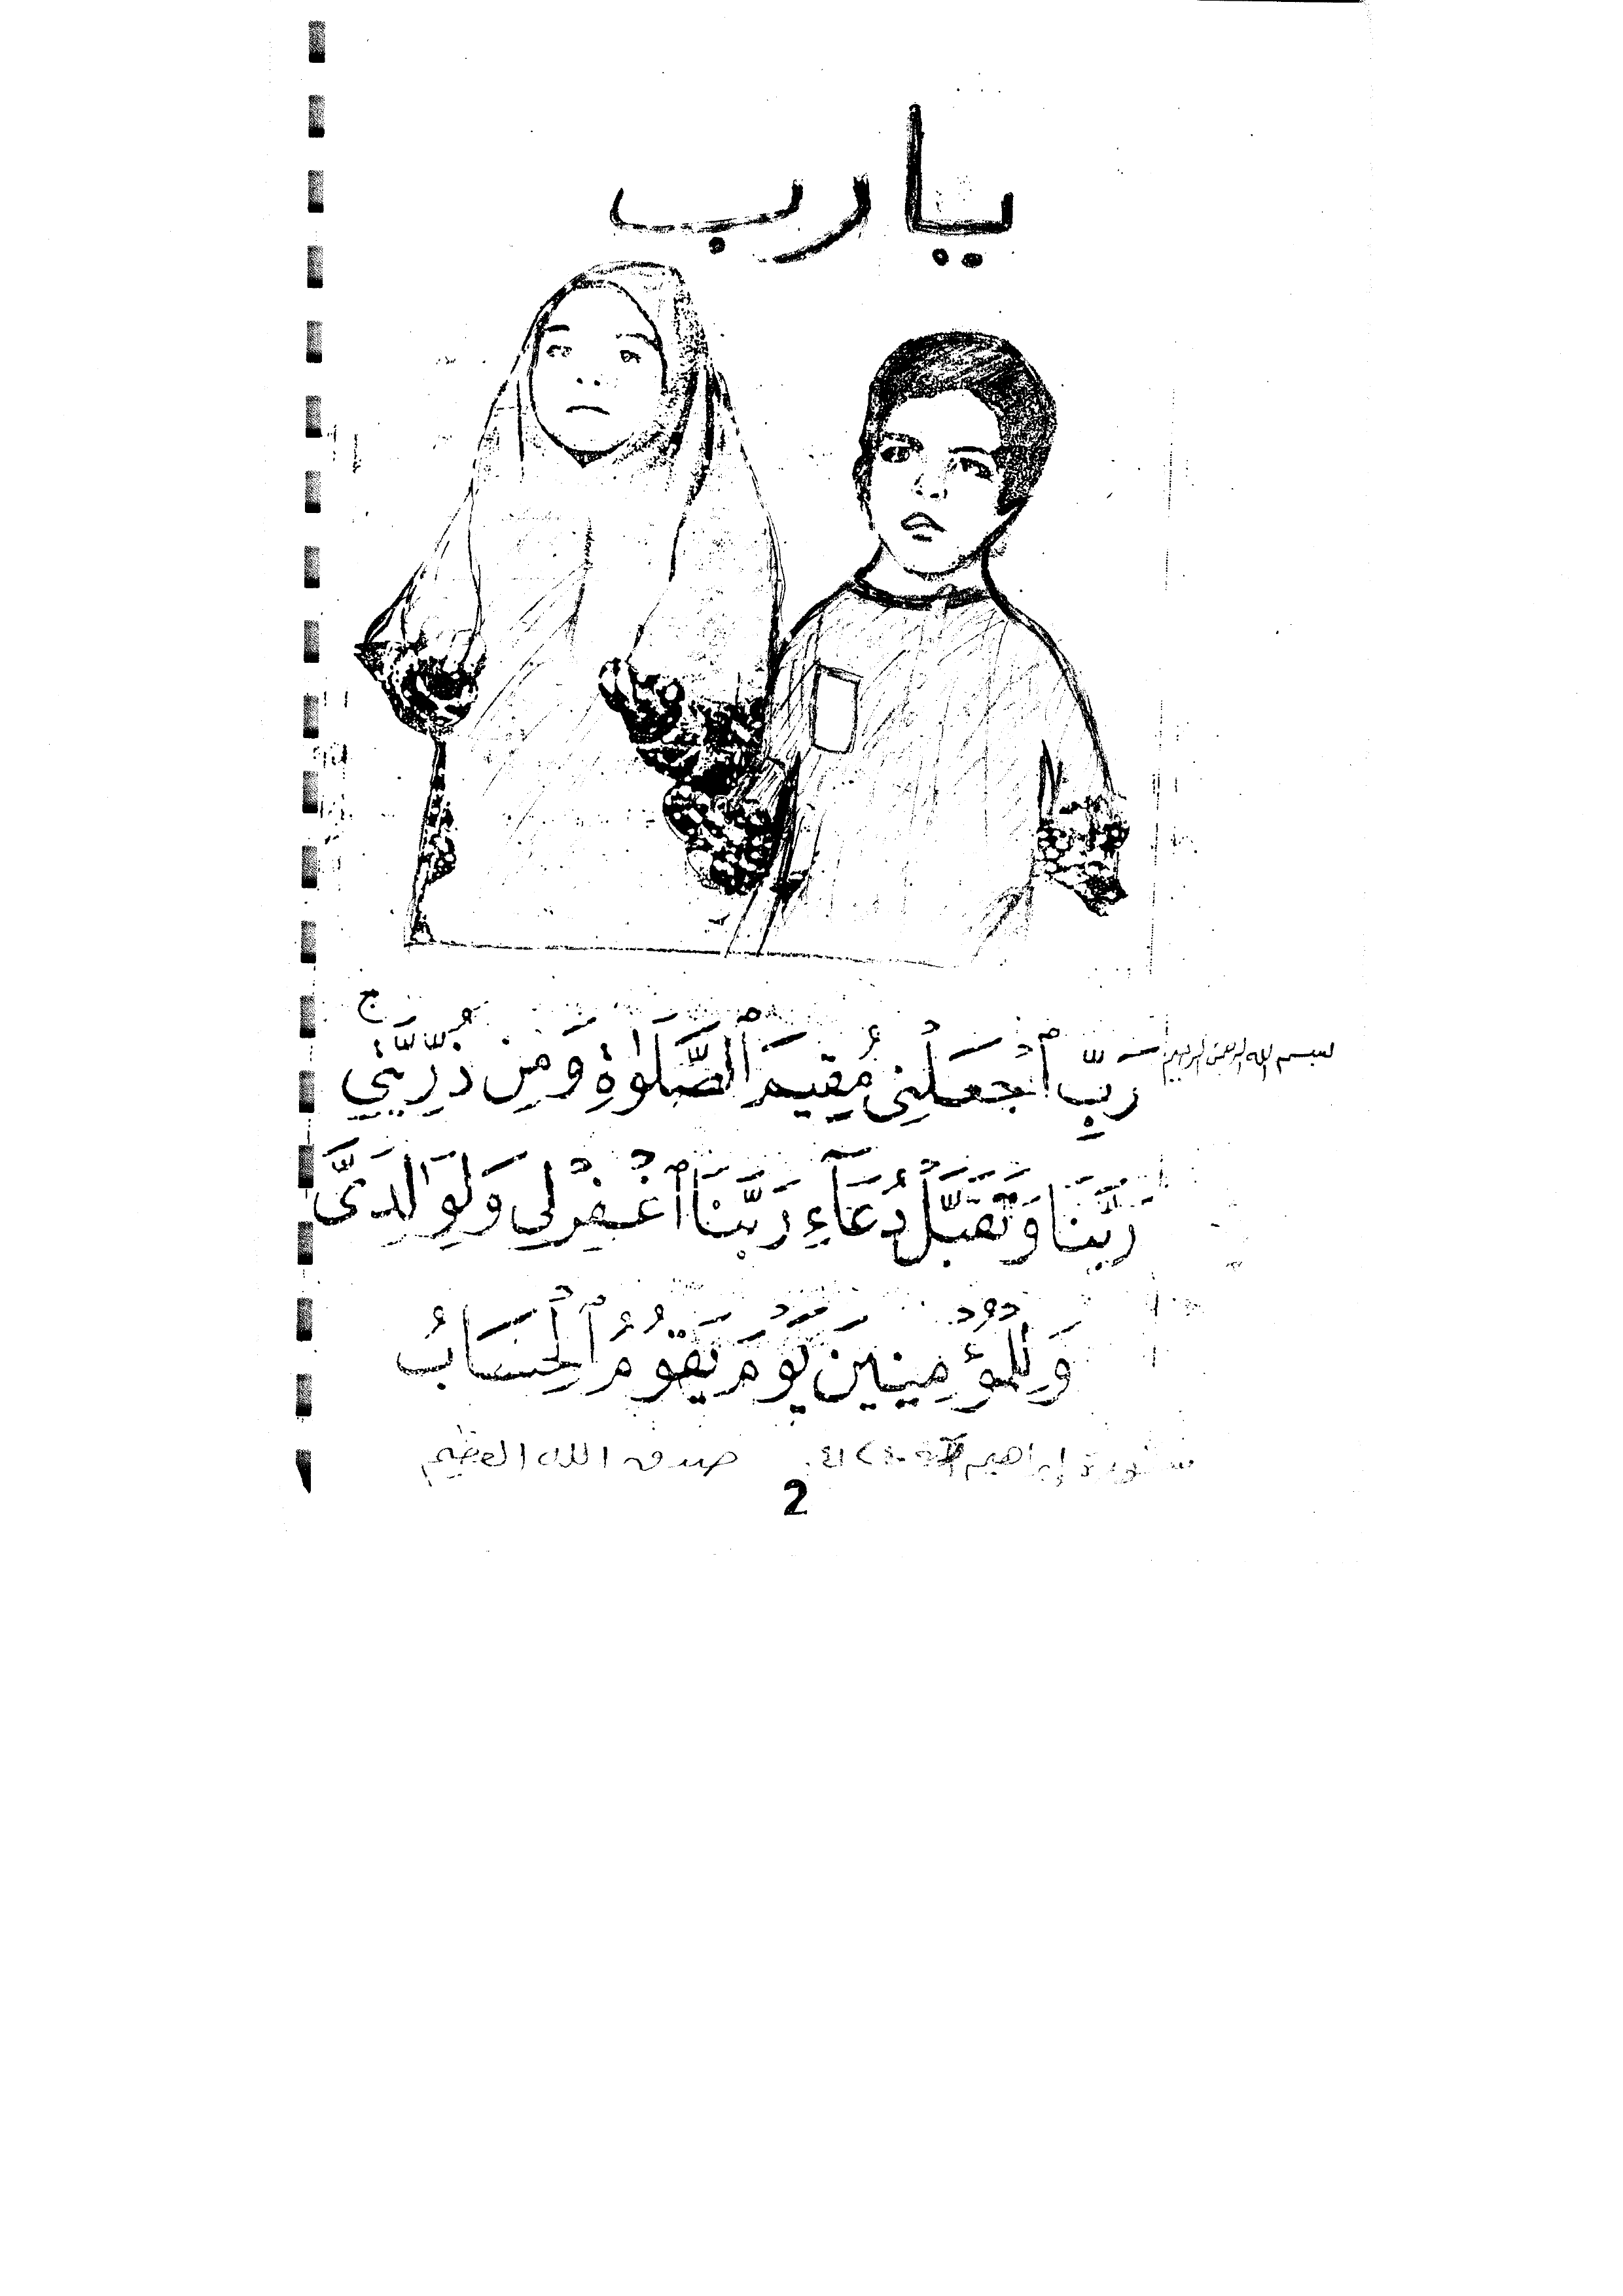 يا رب
بسم الله الرحمن الرحيم رَبِّ ٱجۡعَلۡنِي مُقِيمَ ٱلصَّلَوٰةِ وَمِن ذُرِّيَّتِيۚ
رَبَّنَا وَتَقَبَّلۡ دُعَآءِ رَبَّنَا ٱغۡفِرۡ لِي وَلِوَٰلِدَيَّ
وَلِلۡمُؤۡمِنِينَ يَوۡمَ يَقُومُ ٱلۡحِسَابُ
سورة إبراهيم ٤١ صدق الله العظيم
2